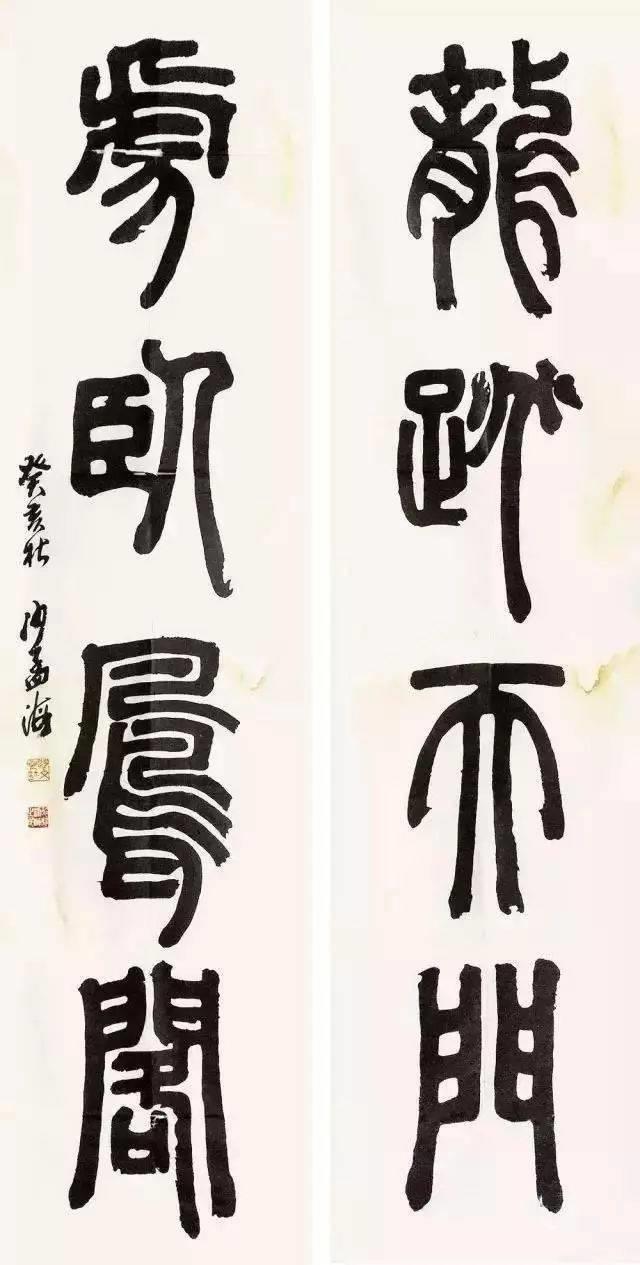 龍跳天門
虎臥鳳閣
癸亥秋 沙孟海